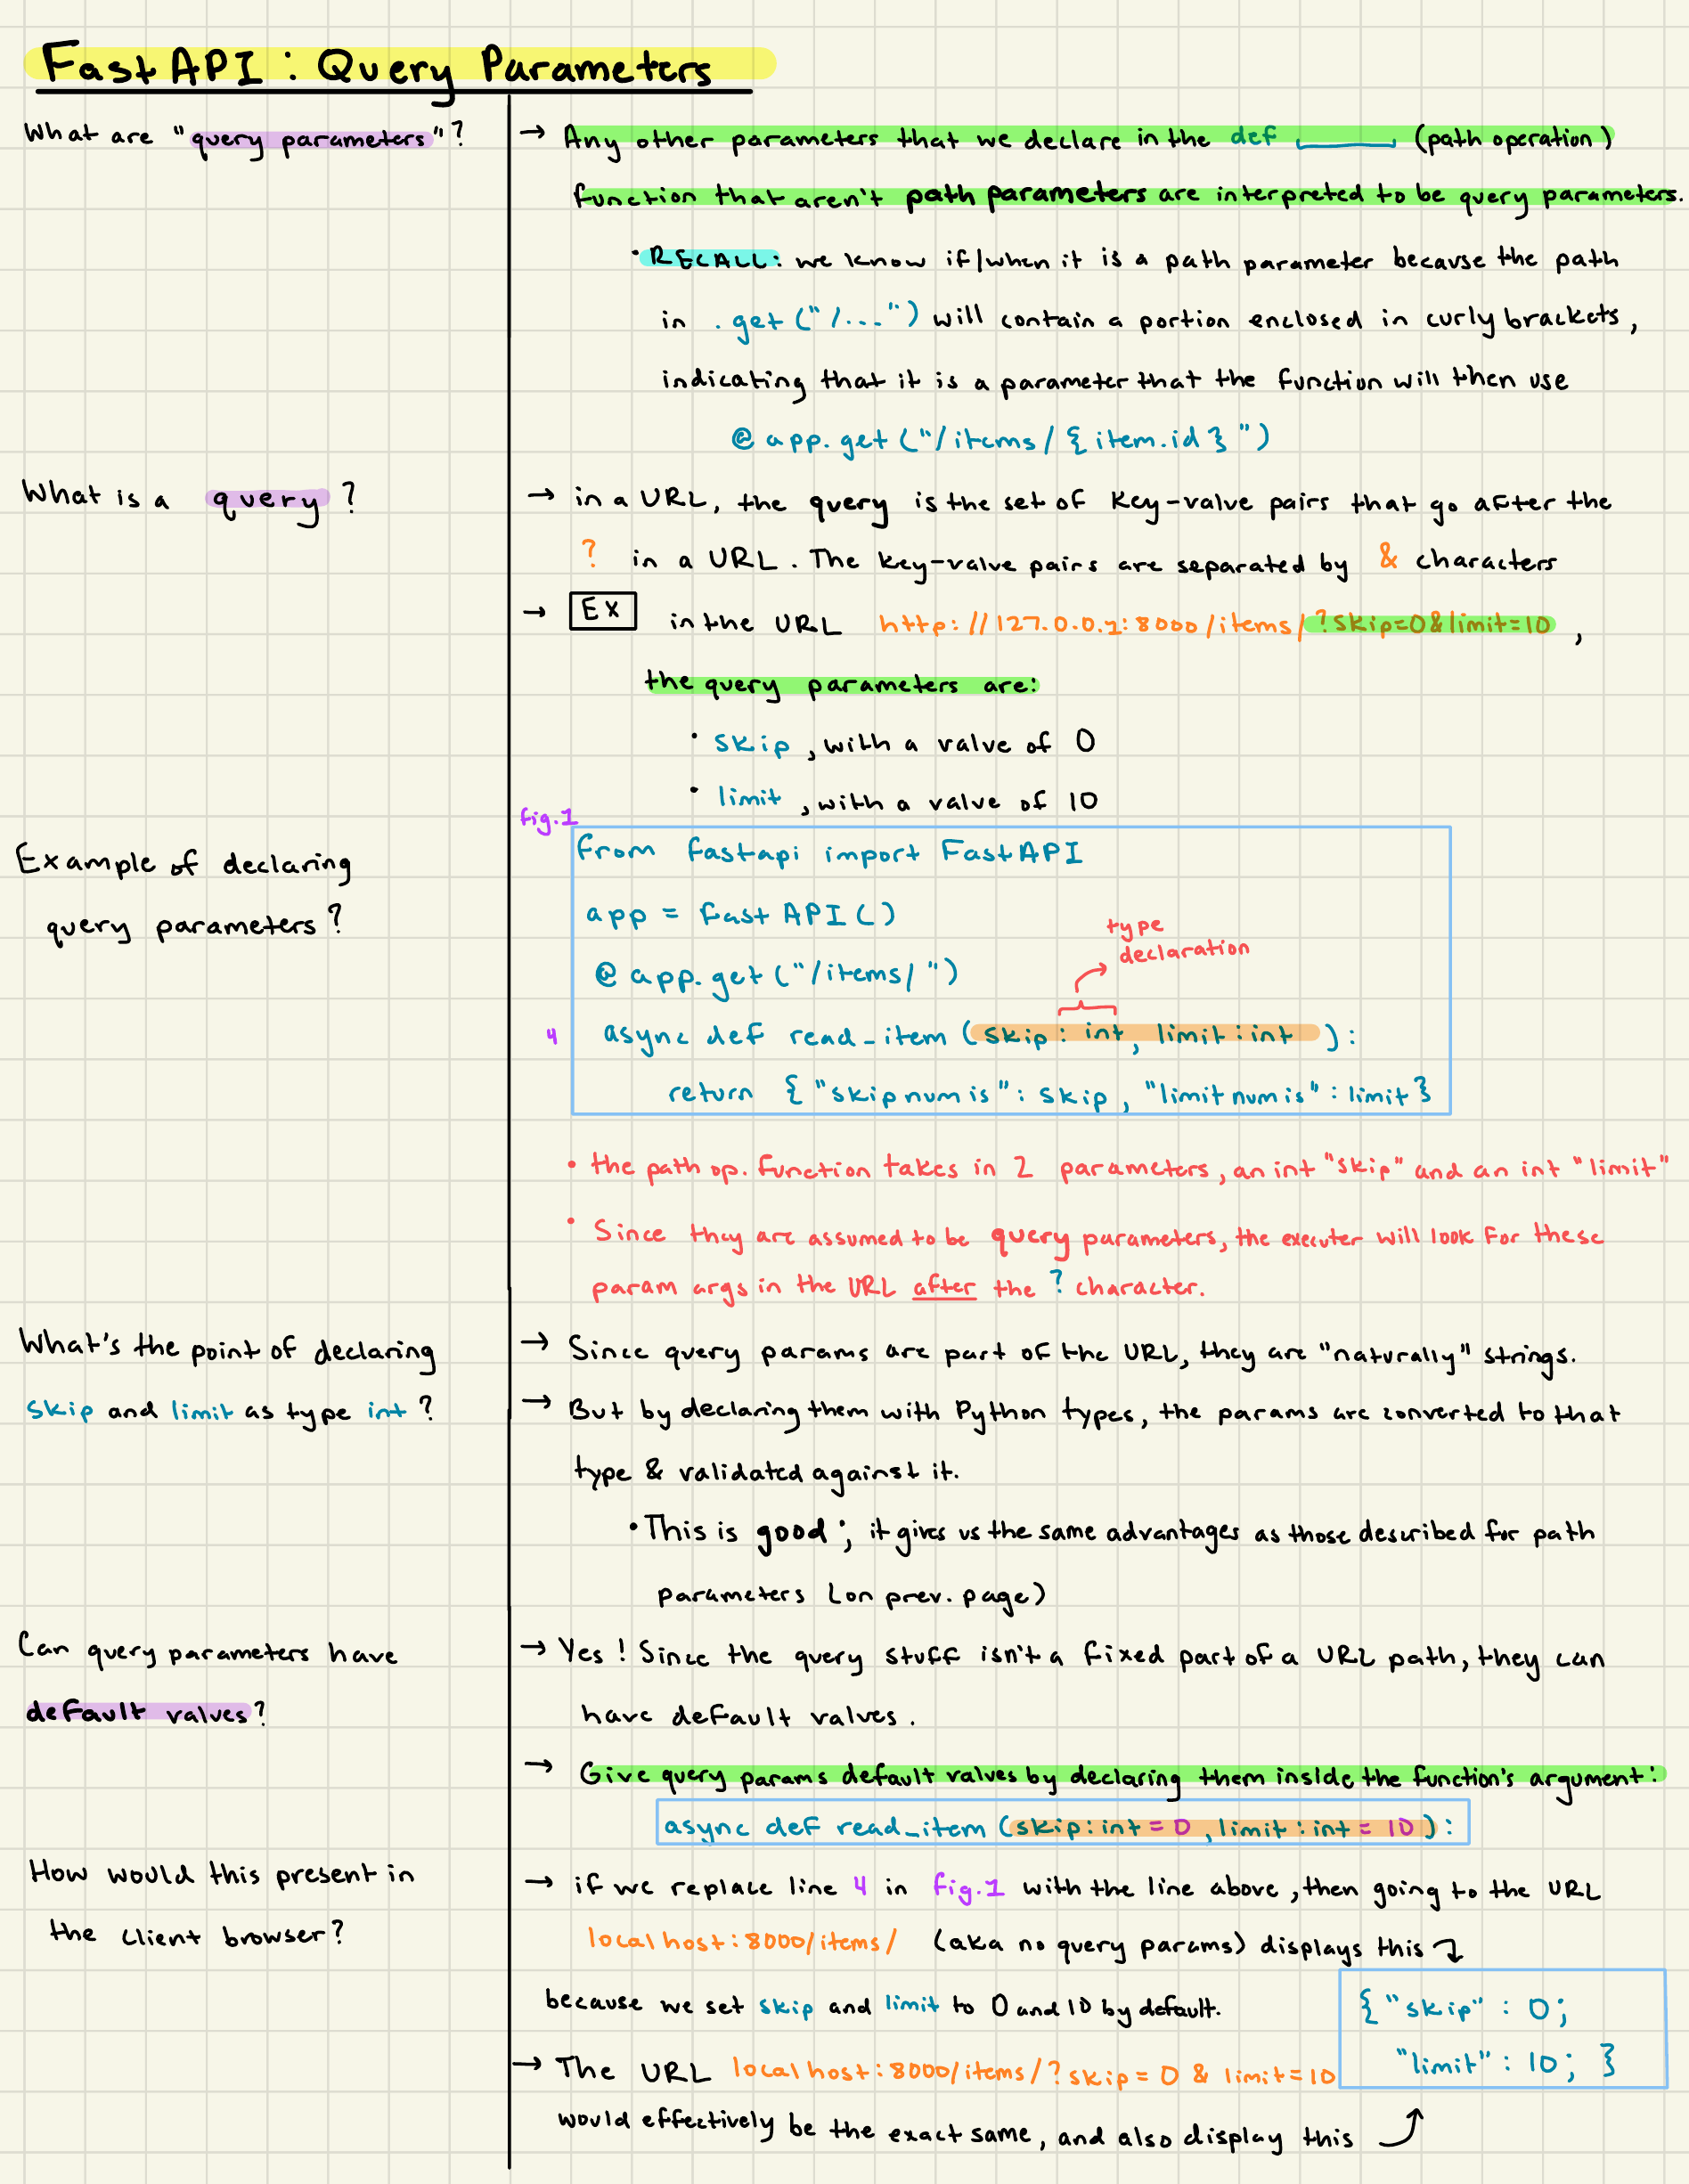 FastAPI : Query Parameters
What are "query parameters"?
→ Any other parameters that we declare in the def ____ (path operation)
function that aren't path parameters are interpreted to be query parameters.
• RECALL: we know if/when it is a path parameter because the path
in .get("/...") will contain a portion enclosed in curly brackets,
indicating that it is a parameter that the function will then use
@app.get("/items/{item.id}")
What is a query?
→ in a URL, the query is the set of key-value pairs that go after the
? in a URL. The key-value pairs are separated by & characters
→ EX in the URL http://127.0.0.1:8000/items/?skip=0&limit=10 ,
the query parameters are:
• skip, with a value of 0
• limit, with a value of 10
fig.1
Example of declaring
query parameters?
from fastapi import FastAPI
app = FastAPI()
@app.get("/items/")
type
declaration
4 async def read_item (skip: int, limit: int):
return {"skip num is": skip, "limit num is": limit}
• the path op. function takes in 2 parameters, an int "skip" and an int "limit"
• Since they are assumed to be query parameters, the executer will look for these
param args in the URL after the ? character.
What's the point of declaring
skip and limit as type int?
→ Since query params are part of the URL, they are "naturally" strings.
→ But by declaring them with Python types, the params are converted to that
type & validated against it.
• This is good; it gives us the same advantages as those described for path
parameters (on prev. page)
Can query parameters have
default values?
→ Yes! Since the query stuff isn't a fixed part of a URL path, they can
have default values.
→ Give query params default values by declaring them inside the function's argument:
async def read_item (skip: int = 0, limit: int = 10):
How would this present in
the client browser?
→ if we replace line 4 in fig.1 with the line above, then going to the URL
localhost:8000/items/ (aka no query params) displays this
because we set skip and limit to 0 and 10 by default.
{"skip": 0;
"limit": 10; }
→ The URL localhost:8000/items/?skip=0 & limit=10
would effectively be the exact same, and also display this